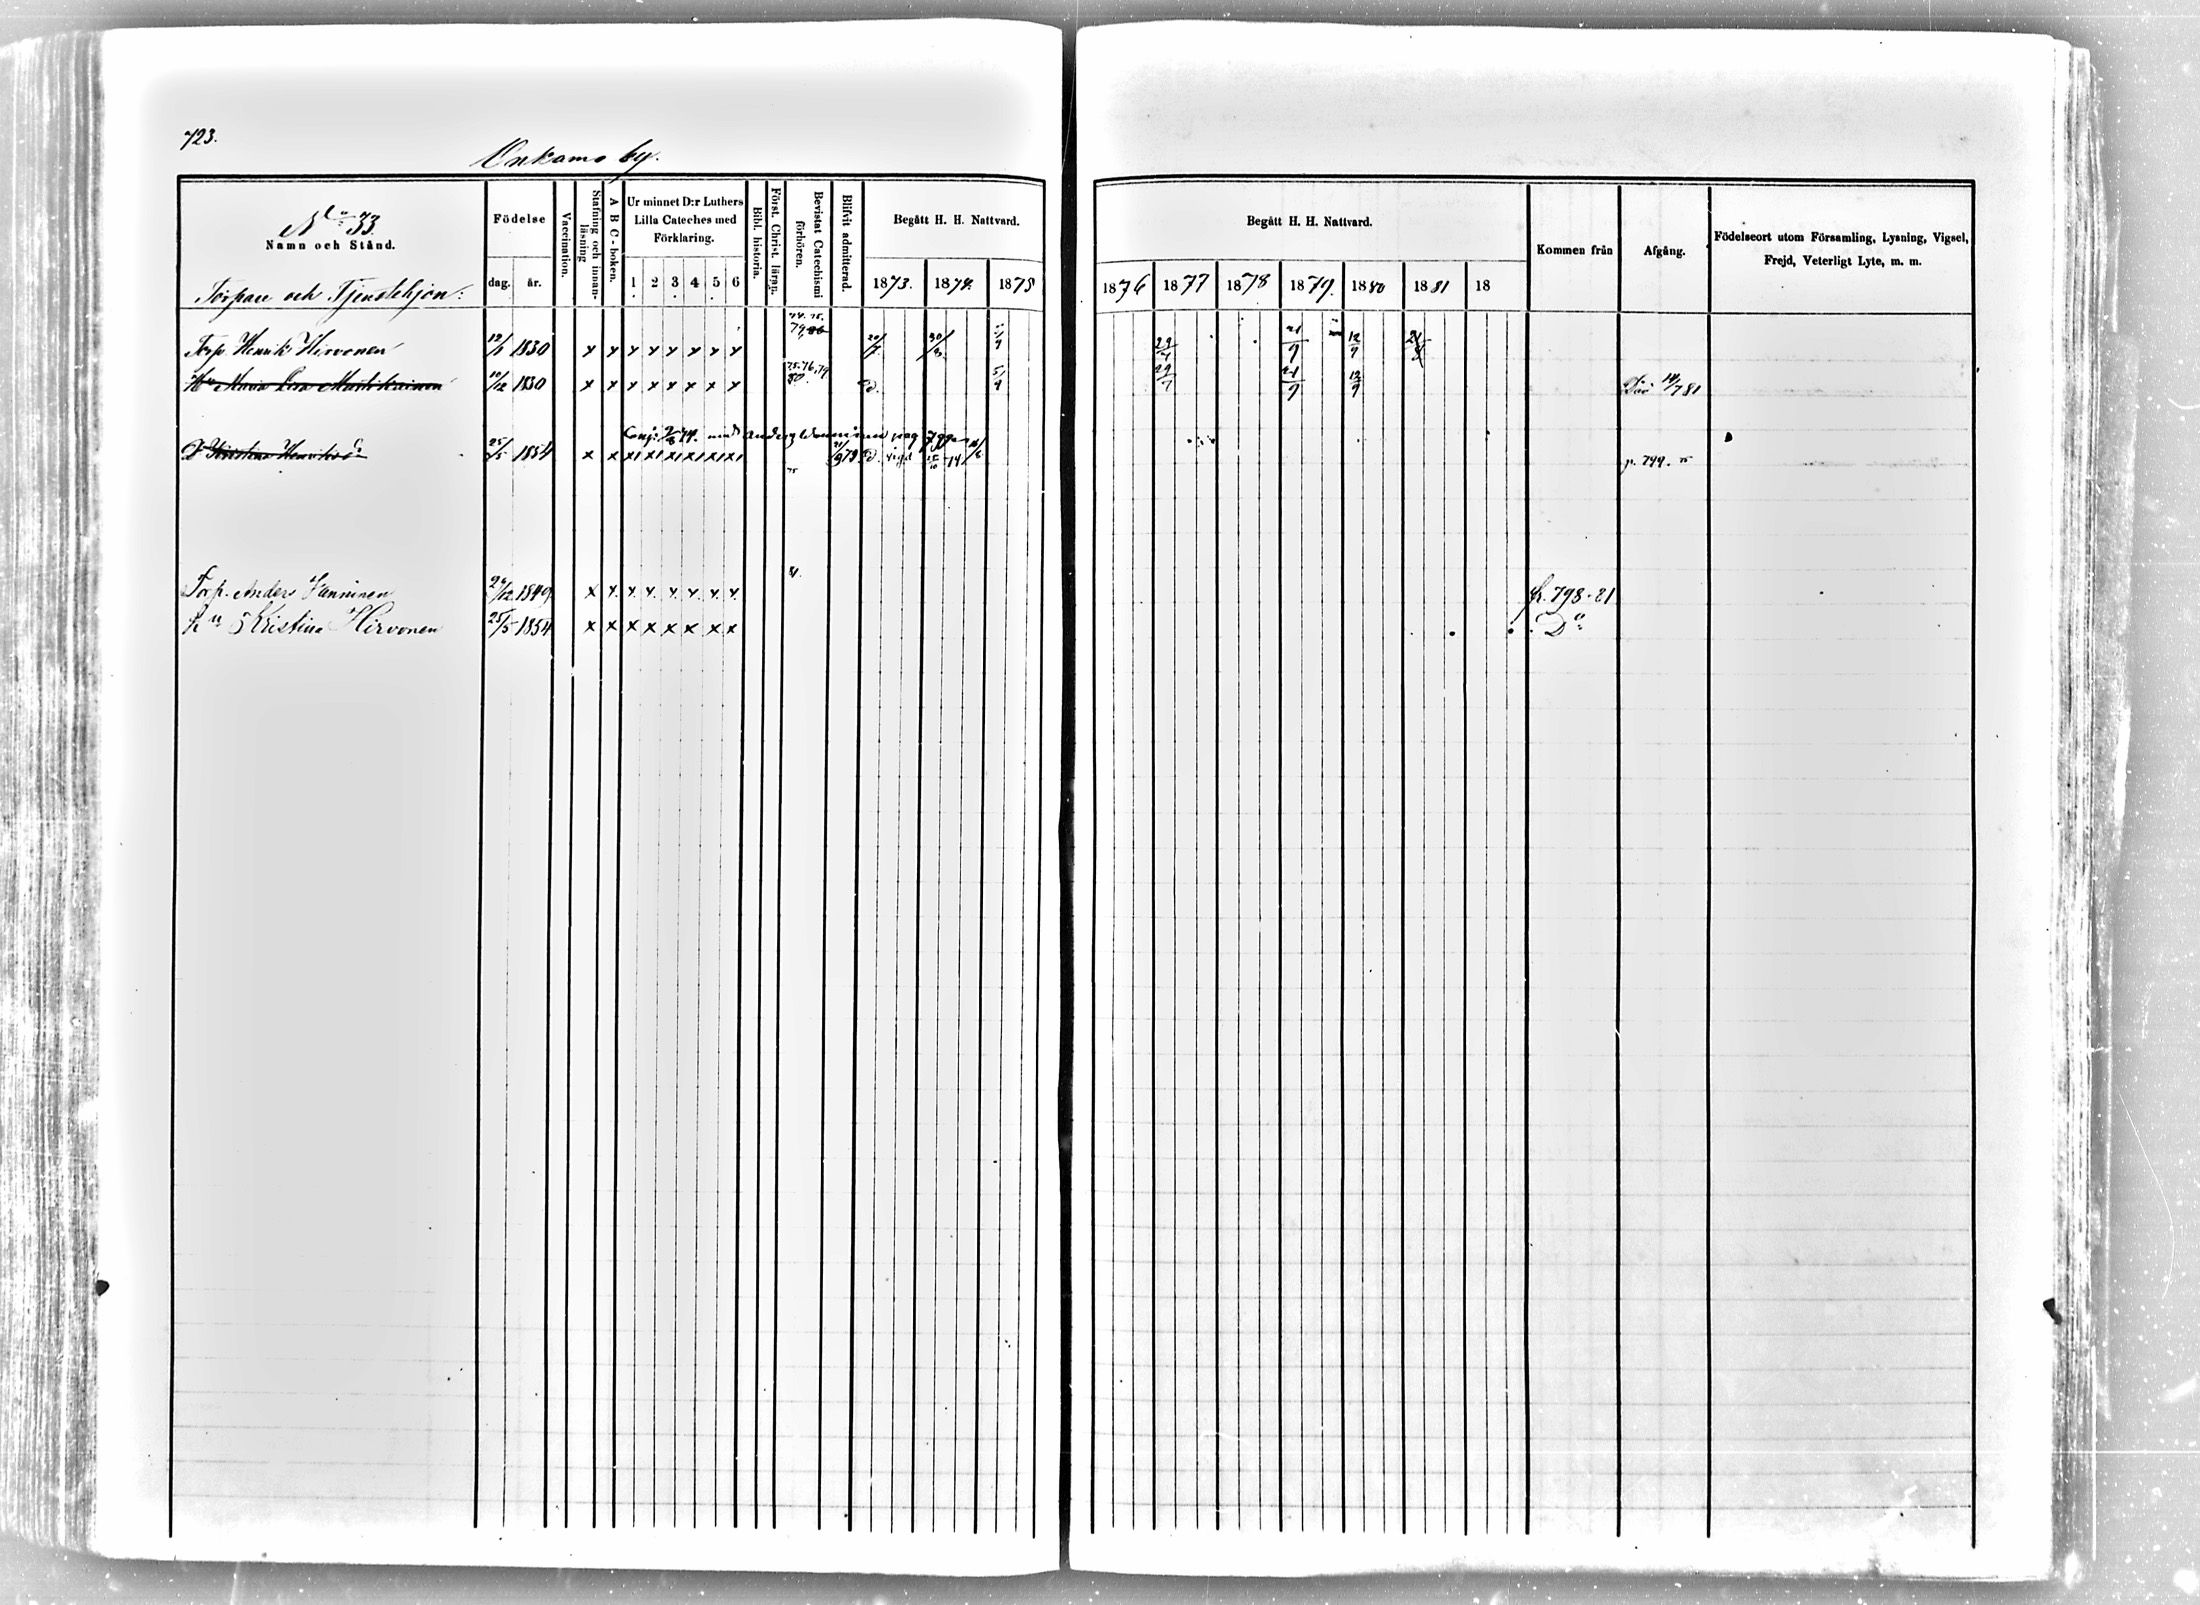 723.
Onkamo by.
No 33.
Namn och Stånd.
Födelse
dag. år.
Vaccination.
Stafning och innanläsning
A B C-boken.
Ur minnet D:r Luthers
Lilla Cateches med
Förklaring.
1 2 3 4 5 6
Bibl. historia.
Först. Christ. läran.
Bevistat Catechismi förhören.
Blifvit admitterad.
Begått H. H. Nattvard.
1873. 1874. 1875
Begått H. H. Nattvard.
1876 1877 1878 1879. 1880 1881 18
Kommen från
Afgång.
Födelseort utom Församling, Lysning, Vigsel,
Frejd, Veterligt Lyte, m. m.
Torpare och Tjenstehjon:
74. 75.
79, 80
Torp. Henrik Hirvonen 12/1 1830 x x x x x x x x 20/7 30/8 5/9 29/7 21/9 12/9 21/8
75. 76. 79
80.
Hu Maria 10/12 1830 x x x x x x x x D. 5/9 29/7 21/9 12/9 Död 14/7 81
med Anders pag 799
D. Kristina Henriksd. 25/5 1854 x x x1 x1 x1 x1 x1 x1 D. vigd 25/10 74 p. 799. 75
75
81.
Torp. Anders Vänninen /12 1849. x x x x x x x x fr. 798-81
Hu Kristina Hirvonen 25/5 1854 x x x x x x x x Do